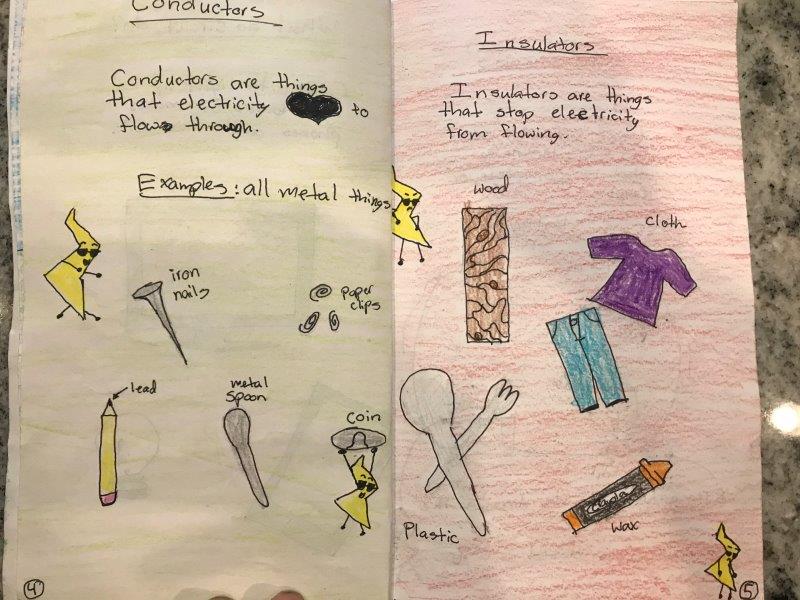 Conductors
Conductors are things
that electricity to
flows through.
Examples: all metal things
iron
nails
paper
clips
lead
metal
spoon
coin
4
Insulators
Insulators are things
that stop electricity
from flowing.
wood
cloth
Plastic
wax
5